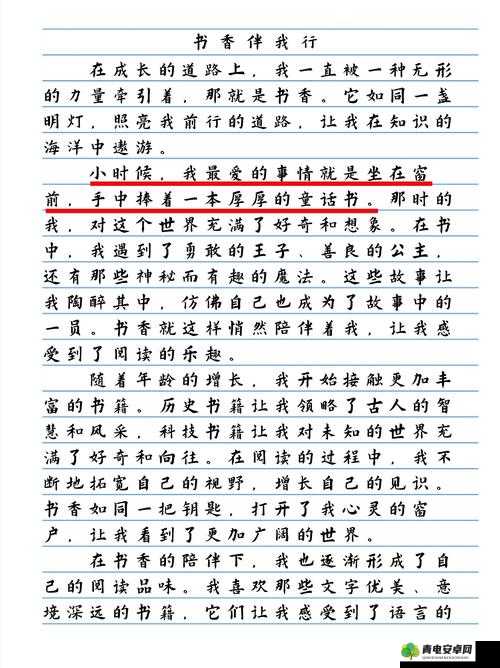 书香伴我行
在成长的道路上，我一直被一种无形
的力量牵引着，那就是书香。它如同一盏
明灯，照亮我前行的道路，让我在知识的
海洋中遨游。
小时候，我最爱的事情就是坐在窗
前，手中捧着一本厚厚的童话书。那时的
我，对这个世界充满了好奇和想象。在书
中，我遇到了勇敢的王子、善良的公主，
还有那些神秘而有趣的魔法。这些故事让
我陶醉其中，仿佛自己也成为了故事中的
一员。书香就这样悄然陪伴着我，让我感
受到了阅读的乐趣。
随着年龄的增长，我开始接触更加丰
富的书籍。历史书籍让我领略了古人的智
慧和风采，科技书籍让我对未知的世界充
满了好奇和向往。在阅读的过程中，我不
断地拓宽自己的视野，增长自己的见识。
书香如同一把钥匙，打开了我心灵的窗
户，让我看到了更加广阔的世界。
在书香的陪伴下，我也逐渐形成了自
己的阅读品味。我喜欢那些文字优美、意
境深远的书籍，它们让我感受到了语言的
青电安卓网